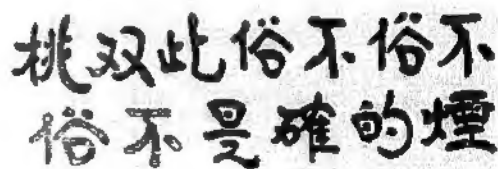 挑双此俗不俗不
俗不是確的煙